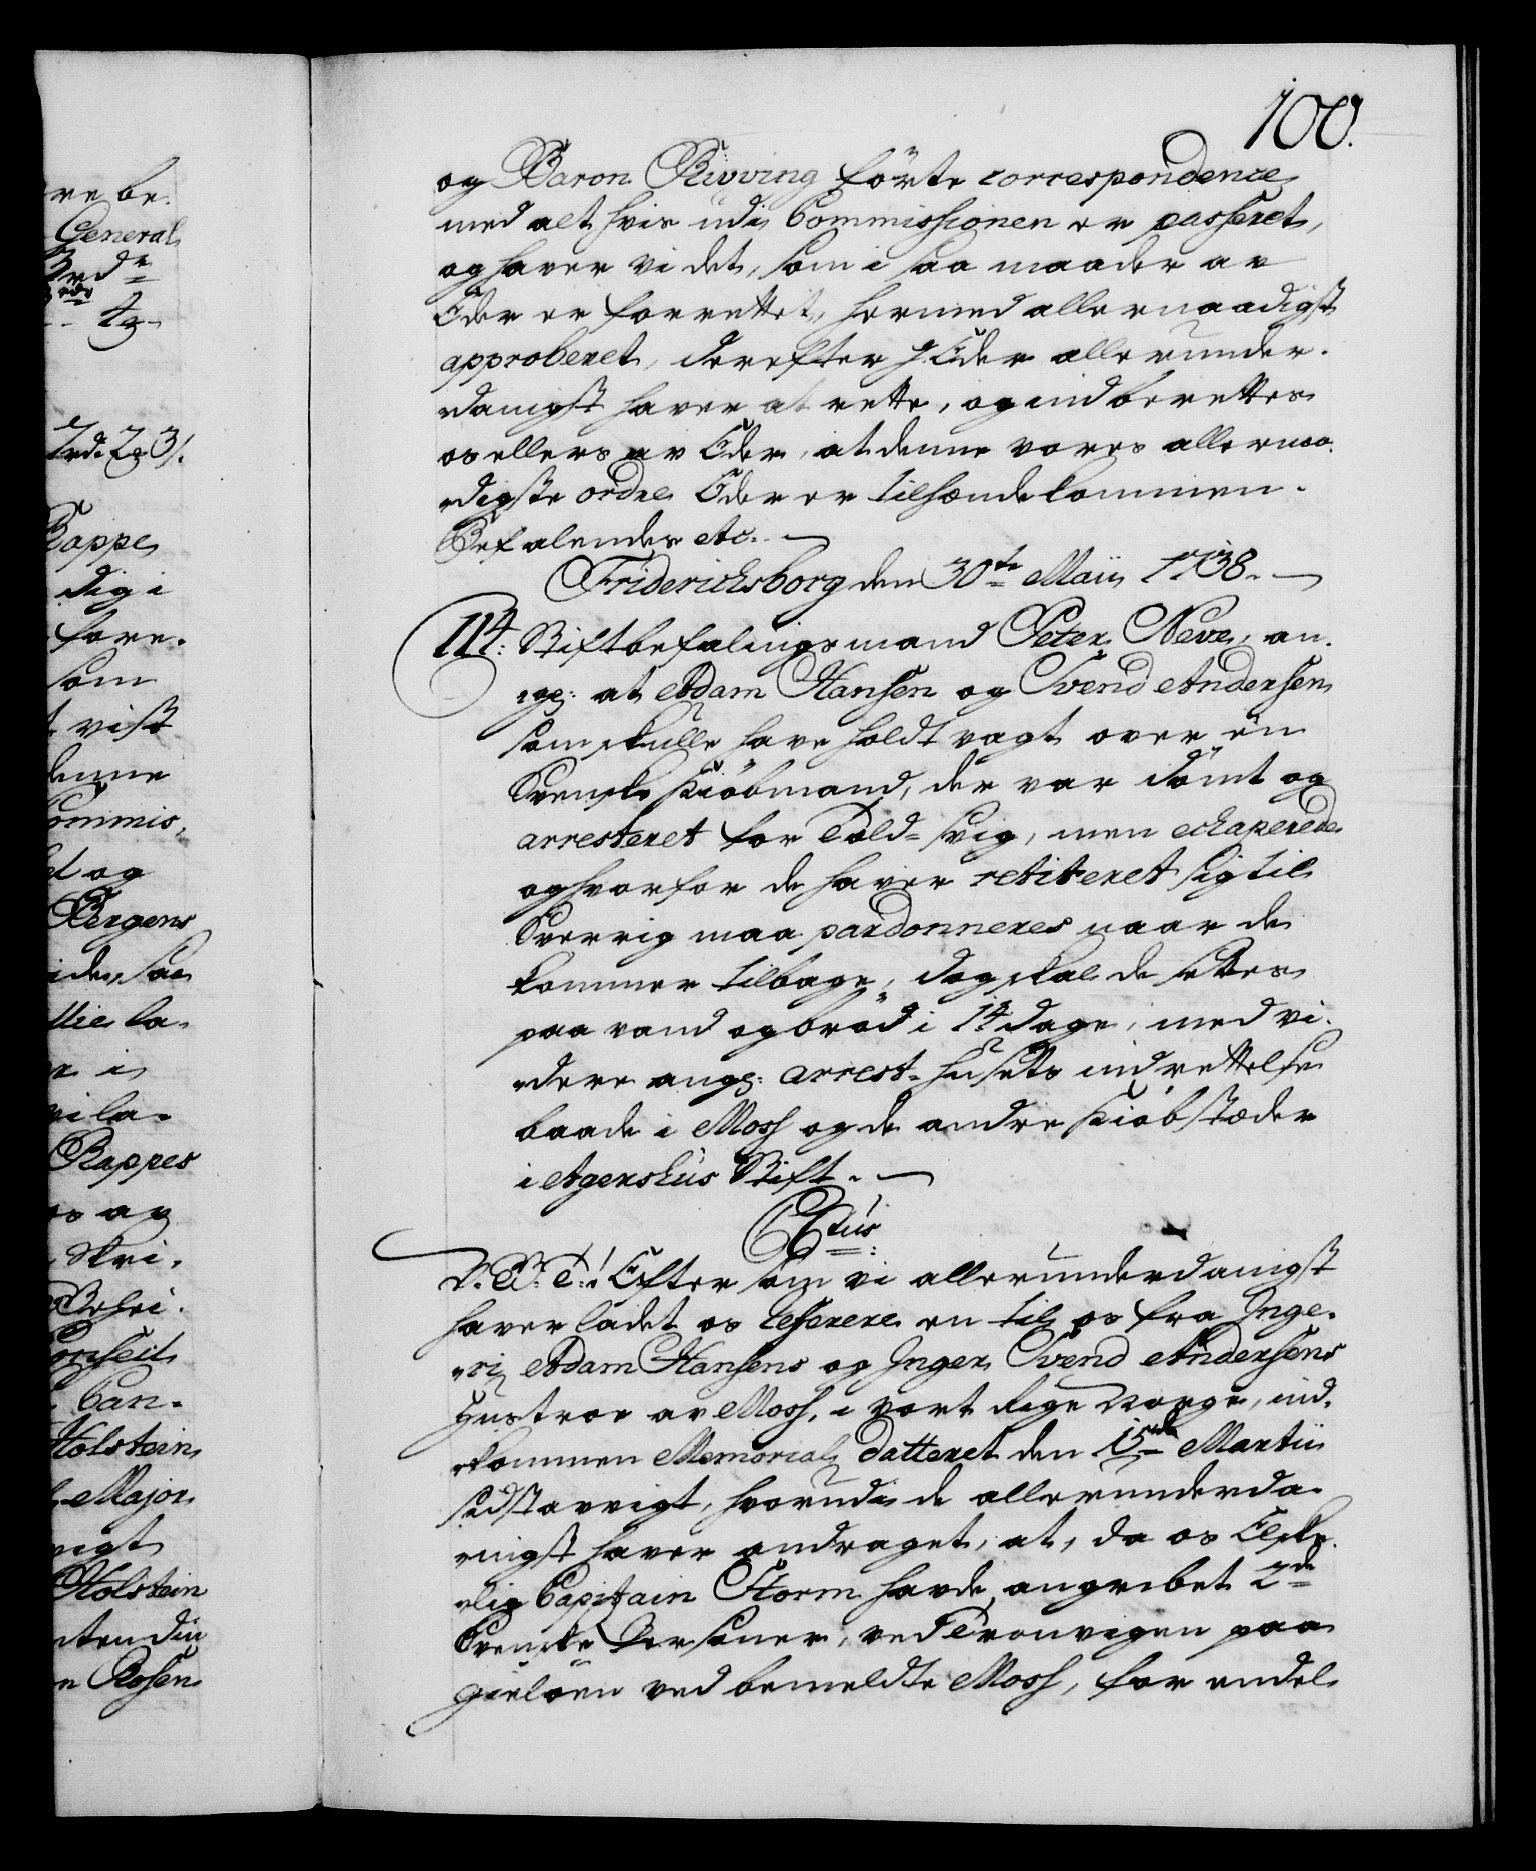 100.
og Baron Riwing førte correspondence
med alt hvis udi Commissionen er passeret,
og haver vi det, som i saa maader av
Eder er forrettet, hermed allernaadigst
approberet, derefter I Eder allerunder-
danigst haver at rette, og indberettes
os ellers av Eder, at denne vores allernaa-
digste ordre Eder er tilhænde kommen.
Befalendes etc.
Friderichsborg den 30te Maii 1738.
114: Stiftbefalingsmand Peter Neve, an-
ge: at Adam Hansen og Svend Andersen
som skulle have holdt vagt over en
Svensk kiøbmand, der var dømt og
arresteret for Told-svig, men echaperede
og hvorfor de haver retireret sig til
Sverrig maa pardonneres naar de
kommer tilbage, dog skal de settes
paa vand og brød i 14 dage, med vi-
dere ang: arrest-husets indrettelse
baade i Moss og de andre kiøbstæder
i Agershuus Stift.
C 6tus
V. G. T.! Efter som vi allerunderdanigst
haver ladet os referere en til os fra Inge-
ri Adam Hansens og Inger Svend Andersens
Hustroe av Moss, i vort Rige Norge, ind-
kommen Memorial datteret den 15de Martii
sidst avvigt, hvorudi de allerunderda-
nigst haver andraget, at, da os Elske-
lig Capitain Storm havde angrebet 2de
Svenske Personer, ved Tronvigen paa
gieløen ved bemeldte Moss, for endel
re be-
General
Brdr
tz
Rappe
dig i
fore-
som
vist
denne
Commis-
et og
Bergens
ide, saa
lie la-
r i
vi la-
Rappes
os av
Skri-
Conseil
Can-
Holstein
Major
vigt
Holstein
n Rosen